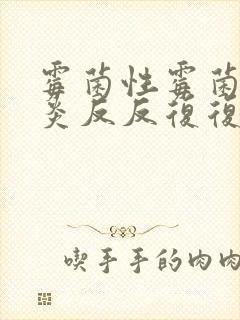 霉菌性霉菌
炎反反復復
喫手手的肉肉